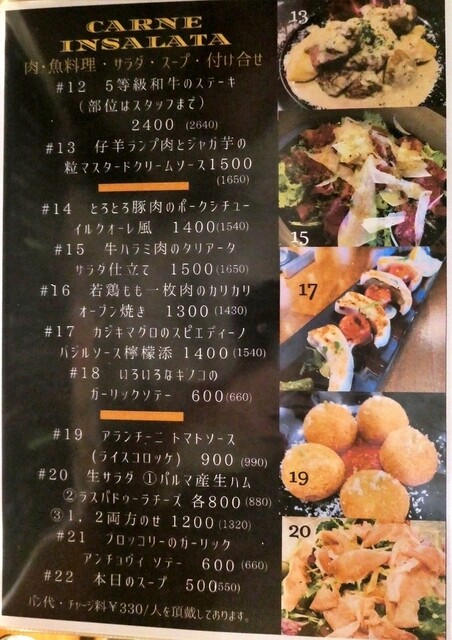 CARNE
INSALATA
肉・魚料理・サラダ・スープ・付け合せ
#12 5等級和牛のステーキ
(部位はスタッフまで)
2400 (2640)
#13 仔羊ランプ肉とジャガ芋の
粒マスタードクリームソース1500
(1650)
#14 とろとろ豚肉のポークシチュー
イルクオーレ風 1400(1540)
#15 牛ハラミ肉のタリアータ
サラダ仕立て 1500(1650)
#16 若鶏もも一枚肉のカリカリ
オーブン焼き 1300(1430)
#17 カジキマグロのスピエディーノ
バジルソース檸檬添 1400(1540)
#18 いろいろなキノコの
ガーリックソテー 600(660)
#19 アランチーニ トマトソース
(ライスコロッケ) 900(990)
#20 生サラダ ①パルマ産生ハム
②ラスパドゥーラチーズ 各800(880)
③1, 2両方のせ 1200(1320)
#21 ブロッコリーのガーリック
アンチョヴィ ソテー 600(660)
#22 本日のスープ 500(550)
パン代・チャージ料¥330/人を頂戴しております。
13
15
17
19
20